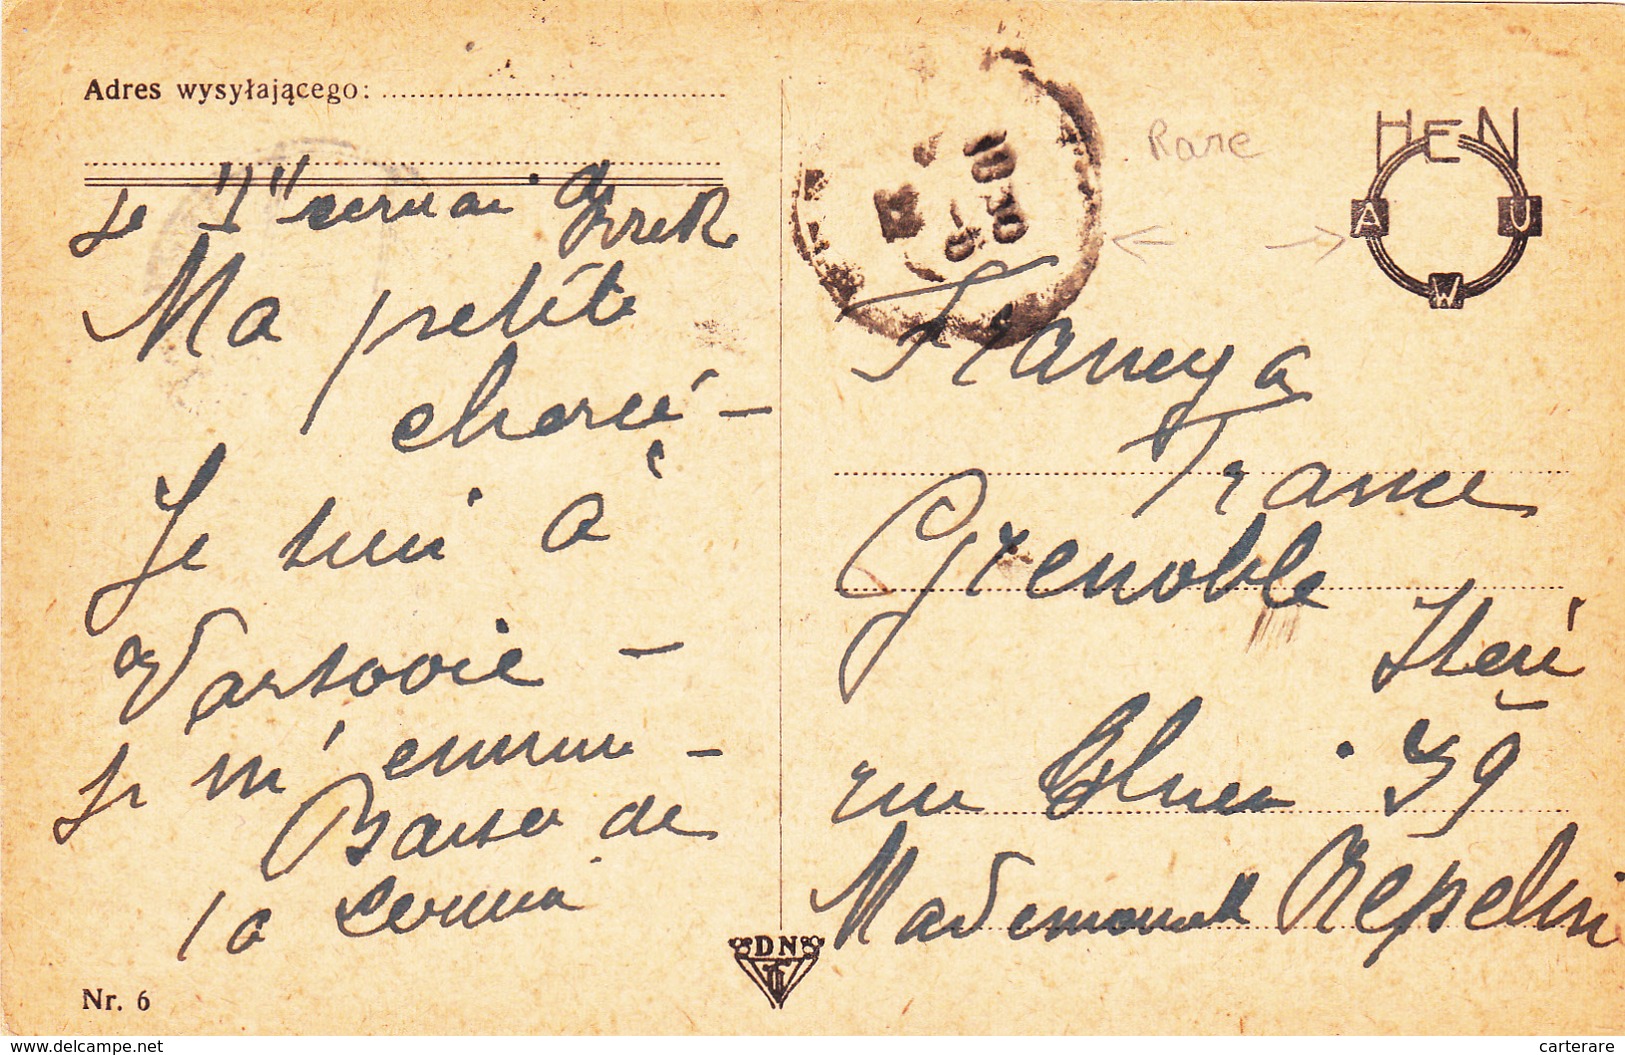 Adres wysyłającego:
Je
Ma petite
cherié –
Je suis à
Varsovie –
je m'ennuie –
Baiser de
la
Nr. 6
DN
10 30
Rare
HEN
A U
W
Francya
France
Grenoble
Iserè
rue 39
Mademoiselle Repelin
www.delcampe.net
carterare